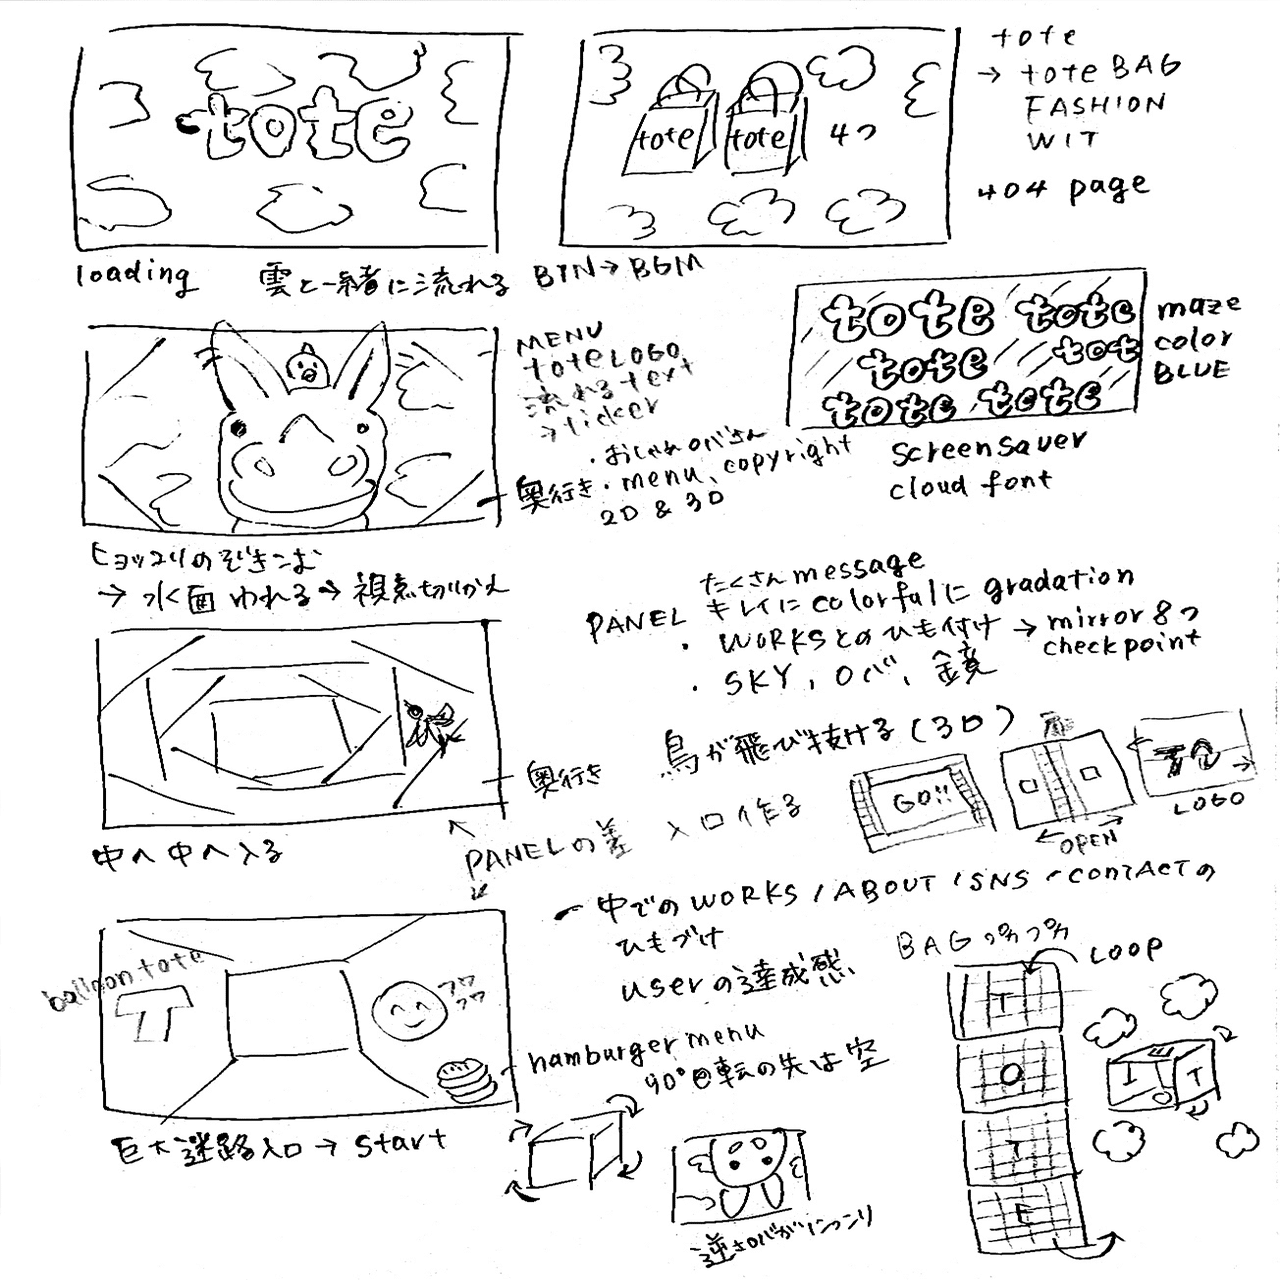 tote
tote
tote
4つ
tote
→ toteBAG
FASHION
WIT
404 page
loading
雲と一緒に流れる
BTN→BGM
MENU
toteLOGO
流れるtext
→ticker
・おしゃれロバさん
奥行き・menu、copyright
2D & 3D
tote tote
tote tot
tote tote
maze
color
BLUE
screensaver
cloud font
ヒョッコリのぞきこむ
→ 水面われる→ 視点切りかえ
たくさんmessage
PANEL キレイにcolorfulにgradation
・WORKSとのひも付け → mirror 8つ
checkpoint
・SKY, ロバ、鏡
奥行き
鳥が飛び抜ける(3D)
中へ中へ入る
PANELの差
入口作る
GO!!
OPEN
LOGO
中でのWORKS/ABOUT/SNS・CONTACTの
ひもづけ
userの達成感
balloon tote
T
フワ
フワ
hamburger menu
90°回転の先は空
巨大迷路入口 → start
逆さロバがにっこり
BAG
LOOP
T
O
T
E
T